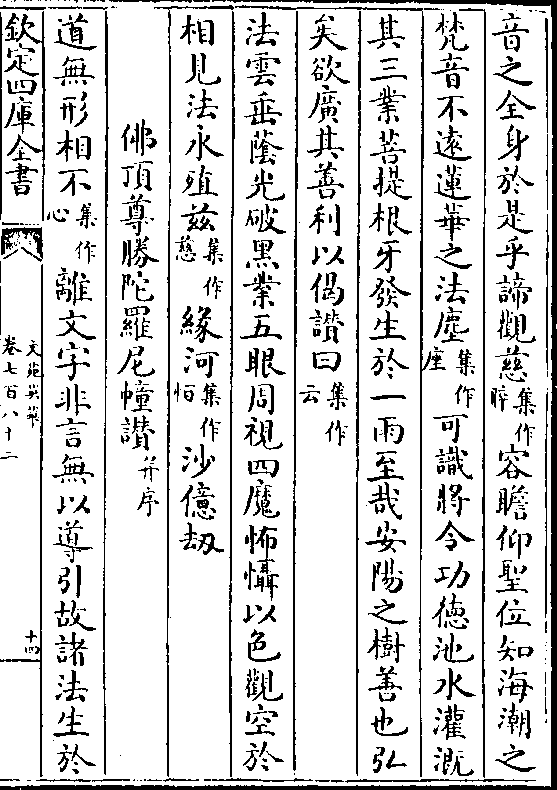 音之全身於是乎諦觀慈集作睟容瞻仰聖位知海潮之
梵音不遠蓮華之法塵集作座可識將令功德池水灌溉
其三業菩提根牙發生於一雨至哉安陽之樹善也弘
矣欲廣其善利以偈讃曰集作云
法雲垂蔭光破黑業五眼周視四魔怖懾以色觀空於
相見法永殖兹集作慈緣河集作恒沙億劫
佛頂尊勝陀羅尼幢讃并序
道無形相不集作心離文字非言無以導引故諸法生於
欽定四庫全書
文苑英華
卷七百八十二
十四